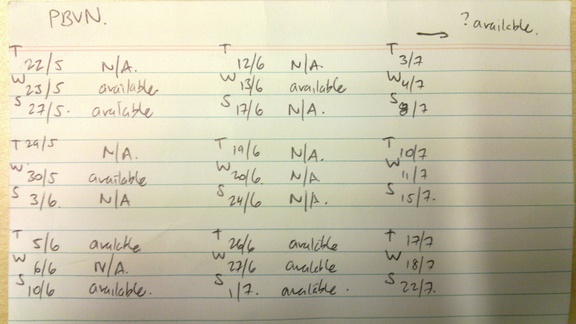 PBVN.
→ ? available.
T 22/5 N/A. T 12/6 N/A. T 3/7
W 23/5 available W 13/6 available W 4/7
S 27/5. available S 17/6 N/A. S 8/7
T 29/5 N/A. T 19/6 N/A. T 10/7
W 30/5 available W 20/6 N/A. W 11/7
S 3/6. N/A S 24/6 N/A. S 15/7.
T 5/6 available T 26/6 available T 17/7
W 6/6 N/A. W 27/6 available W 18/7
S 10/6 available. S 1/7. available. S 22/7.